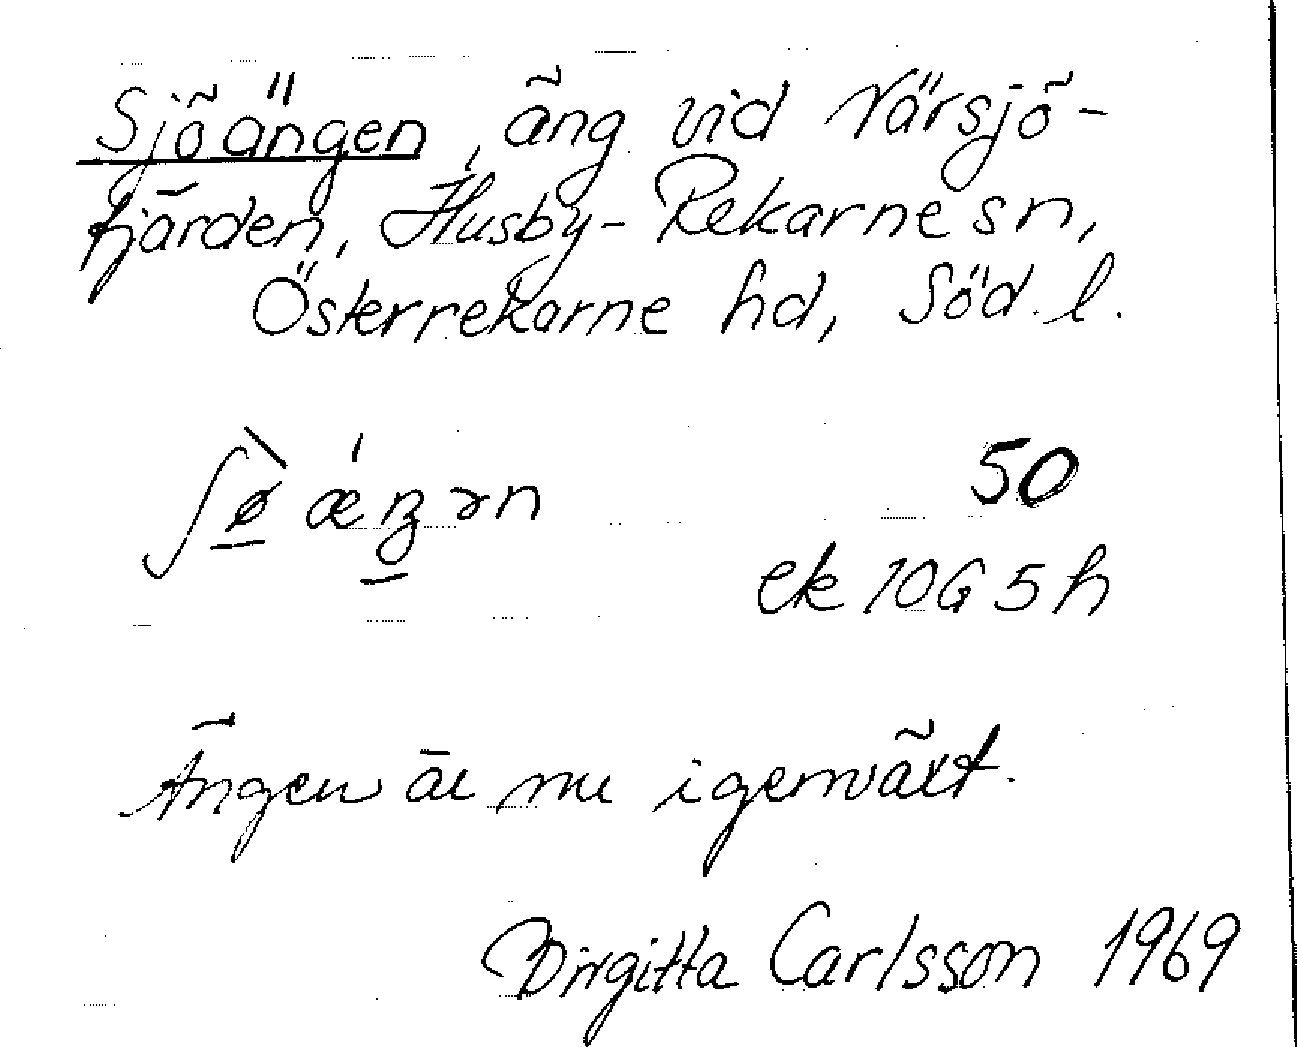 Sjöängen, äng vid Närsjö-
fjärden, Husby-Rekarne sn,
Österrekarne hd, Söd. l.
ʃø̀ǽŋən 50
ek 10G 5h
Ängen är nu igenväxt.
Birgitta Carlsson 1969